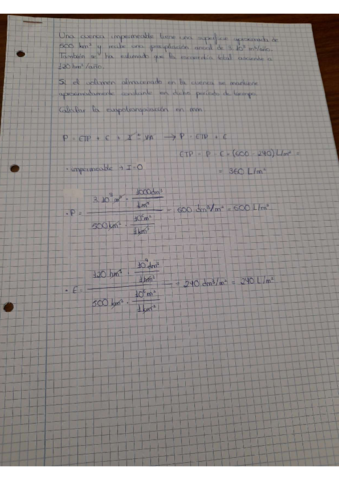 Una cuenca impermeable tiene una superficie aproximada de
500 km² y recibe una precipitación anual de 3·10⁸ m³/año.
También se ha estimado que la escorrentía total asciende a
120 hm³/año.
Si el volumen almacenado en la cuenca se mantiene
aproximadamente constante en dicho periodo de tiempo.
Calcular la evapotranspiración en mm.
P = ETP + E + I ± → P = ETP + E
ETP = P - E = (600 - 240) L/m² =
- impermeable → I=0
= 360 L/m²
3·10⁸ m³ · 1000dm³
1m³
• P = = 600 dm³/m² = 600 L/m²
500km² · 10⁶m²
1km²
120 hm³ · 10⁹dm³
1hm³
• E = = 240 dm³/m² = 240 L/m²
500 km² · 10⁶m²
1km²